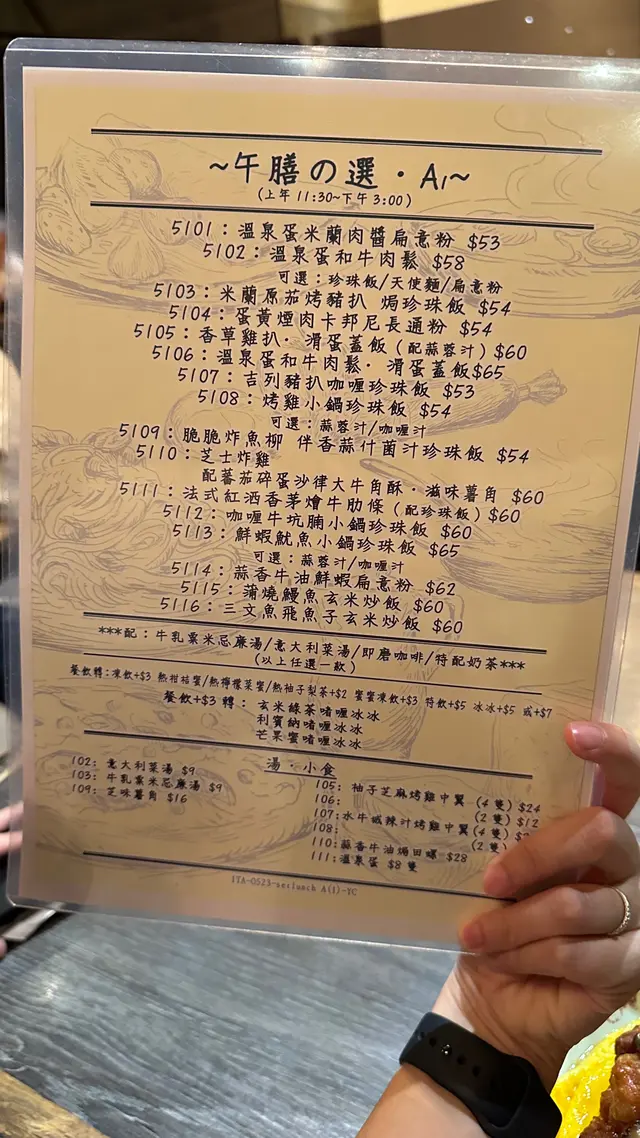 ~午膳の選·A1~
(上午 11:30~下午 3:00)
5101：溫泉蛋米蘭肉醬扁意粉 $53
5102：溫泉蛋和牛肉鬆 $58
可選：珍珠飯/天使麵/扁意粉
5103：米蘭原茄烤豬扒 焗珍珠飯 $54
5104：蛋黃煙肉卡邦尼長通粉 $54
5105：香草雞扒·滑蛋蓋飯(配蒜蓉汁)$60
5106：溫泉蛋和牛肉鬆·滑蛋蓋飯$65
5107：吉列豬扒咖喱珍珠飯 $53
5108：烤雞小鍋珍珠飯 $54
可選：蒜蓉汁/咖喱汁
5109：脆脆炸魚柳 伴香蒜什菌汁珍珠飯 $54
5110：芝士炸雞
配蕃茄碎蛋沙律大牛角酥·滋味薯角 $60
5111：法式紅酒香茅燴牛肋條(配珍珠飯)$60
5112：咖喱牛坑腩小鍋珍珠飯 $60
5113：鮮蝦魷魚小鍋珍珠飯 $65
可選：蒜蓉汁/咖喱汁
5114：蒜香牛油鮮蝦扁意粉 $62
5115：蒲燒鰻魚玄米炒飯 $60
5116：三文魚飛魚子玄米炒飯 $60
***配：牛乳粟米忌廉湯/意大利菜湯/即磨咖啡/特配奶茶***
(以上任選一款)
餐飲轉：凍飲+$3 熱柑桔蜜/熱檸檬菜蜜/熱柚子梨茶+$2 蜜蜜凍飲+$3 特飲+$5 冰冰+$5 或+$7
餐飲+$3 轉： 玄米綠茶啫喱冰冰
利賓納啫喱冰冰
芒果蜜啫喱冰冰
湯·小食
102: 意大利菜湯 $9
103: 牛乳粟米忌廉湯 $9
109: 芝味薯角 $16
105: 柚子芝麻烤雞中翼 (4 隻) $24
106: (2 隻) $12
107:水牛城辣汁烤雞中翼(4 隻)
108: (2 隻)
110:蒜香牛油焗田螺 $28
111:溫泉蛋 $8 隻
ITA-0523-setlunch A(1)-YC